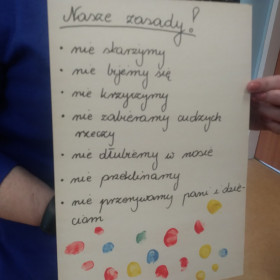 Nasze zasady!
• nie skarżymy
• nie bijemy się
• nie krzyczymy
• nie zabieramy cudzych
rzeczy
• nie dłubiemy w nosie
• nie przeklinamy
• nie przerywamy pani i dzie-
ciom